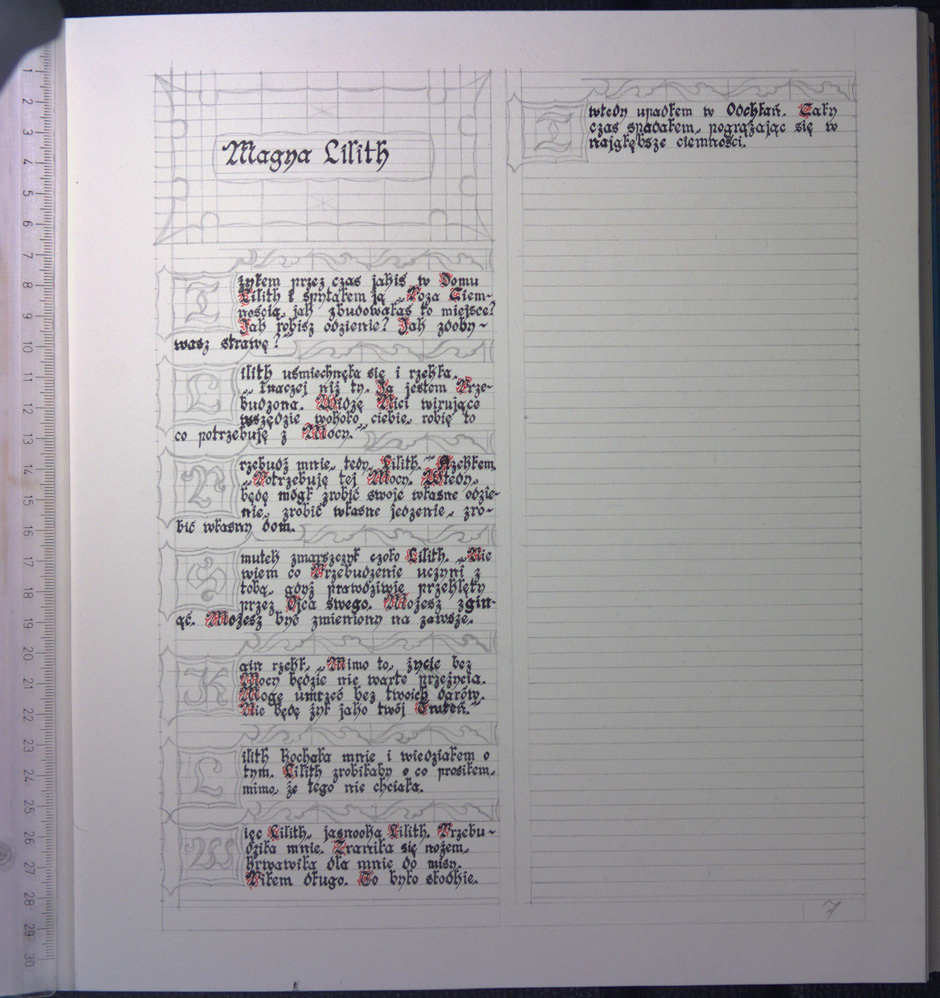 Magya Lilith
I żyłem przez czas jakiś w Domu
Lilith i spytałem ją „Poza Ciem-
nością, jak zbudowałaś to miejsce?
Jak robisz odzienie? Jak zdoby-
wasz strawę?"
Lilith uśmiechnęła się i rzekła.
„Inaczej niż ty. Ja jestem Prze-
budzona. Widzę Nici wirujące
wszędzie wokoło ciebie, robię to
co potrzebuję z Mocy."
Przebudź mnie, tedy, Lilith." Rzekłem.
„Potrzebuję tej Mocy. Wtedy,
będę mógł zrobić swoje własne odzie-
nie, zrobić własne jedzenie, zro-
bić własny dom.
Smutek zmarszczył czoło Lilith. „Nie
wiem co Przebudzenie uczyni z
tobą, gdyż prawdziwie przeklęty
przez Ojca swego. Możesz zgin-
ąć. Możesz być zmieniony na zawsze.
Kain rzekł, „Mimo to, życie bez
Mocy będzie nie warte przeżycia.
Mogę umrzeć bez twoich darów.
Nie będę żył jako twój Truteń."
Lilith Kochała mnie i wiedziałem o
tym. Lilith zrobiłaby o co prosiłem,
mimo, że tego nie chciała.
Więc Lilith, jasnooka Lilith. Przebu-
dziła mnie. Zraniła się nożem,
krwawiła dla mnie do misy.
Piłem długo. To było słodkie.
I wtedy upadłem w Odchłań. Cały
czas spadałem, pogrążając się w
najgłębsze ciemności.
7
1
2
3
4
5
6
7
8
9
10
11
12
13
14
15
16
17
18
19
20
21
22
23
24
25
26
27
28
29
30